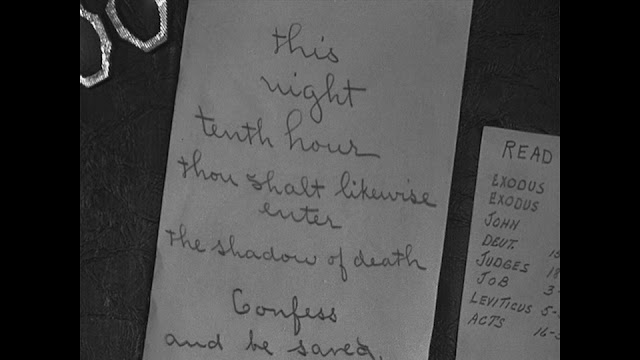 this
night
tenth hour
thou shalt likewise
enter
the shadow of death
Confess
and be saved.
READ
EXODUS
EXODUS
JOHN
DEUT.
JUDGES 18
JOB 3-
LEVITICUS 5-
ACTS 16-